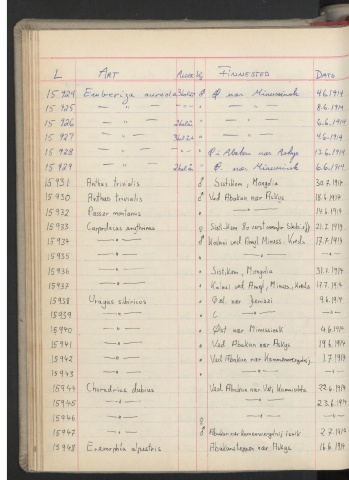 L ART ALDER ♂/♀ FINNESTED DATO
15 924 Emberiza aureola ♂ ø nær Minussinsk 4.6.1914
15 925 — " — — " — 8.6.1914
15 926 — " — — " — 6.6.1914
15 927 — " — — " — 4.6.1914
15 928 — " — Abakan nær Askys 13.6.1914
15 929 — " — ø. nær Minussinsk 6.6.1914
15 931 Anthus trivialis ♂ Sistikem, Mongolia 30.7.1914
15 930 Anthus trivialis ♂ Ved Abakan nær Askys 18.6.1914
15 932 Passer montanus " — " — 14.6.1914
15 933 Carpodacus erythrinus Sisti-Kem 21.7.1914
15 934 — " — ♂ Kalnei und Amyl Minuss. Kreds 17.7.1914
15 935 — " — " — " —
15 936 — " — " Sisti-Kem, Mongolia 31.7.1914
15 937 — " — " Kalnei und Amyl, Minuss. Kreds 17.7.1914
15 938 Uragus sibiricus " nær Jenissei 9.6.1914
15 939 — " —
15 940 — " — " Øst nær Minussinsk 4.6.1914
15 941 — " — " Ved Abakan nær Askys 19.6.1914
15 942 — " — " Ved Abakan nær 1.7.1914
15 943 — " — " — " —
15 944 Charadrius dubius Ved Abakan nær 22.6.1914
15 945 — " — — " — 23.6.1914
15 946 — " — ♀ — " —
15 947 — " — ♂ Abakan nær 2.7.1914
15 948 Eremophila alpestris " Abakansteppen nær Askys 16.6.1914